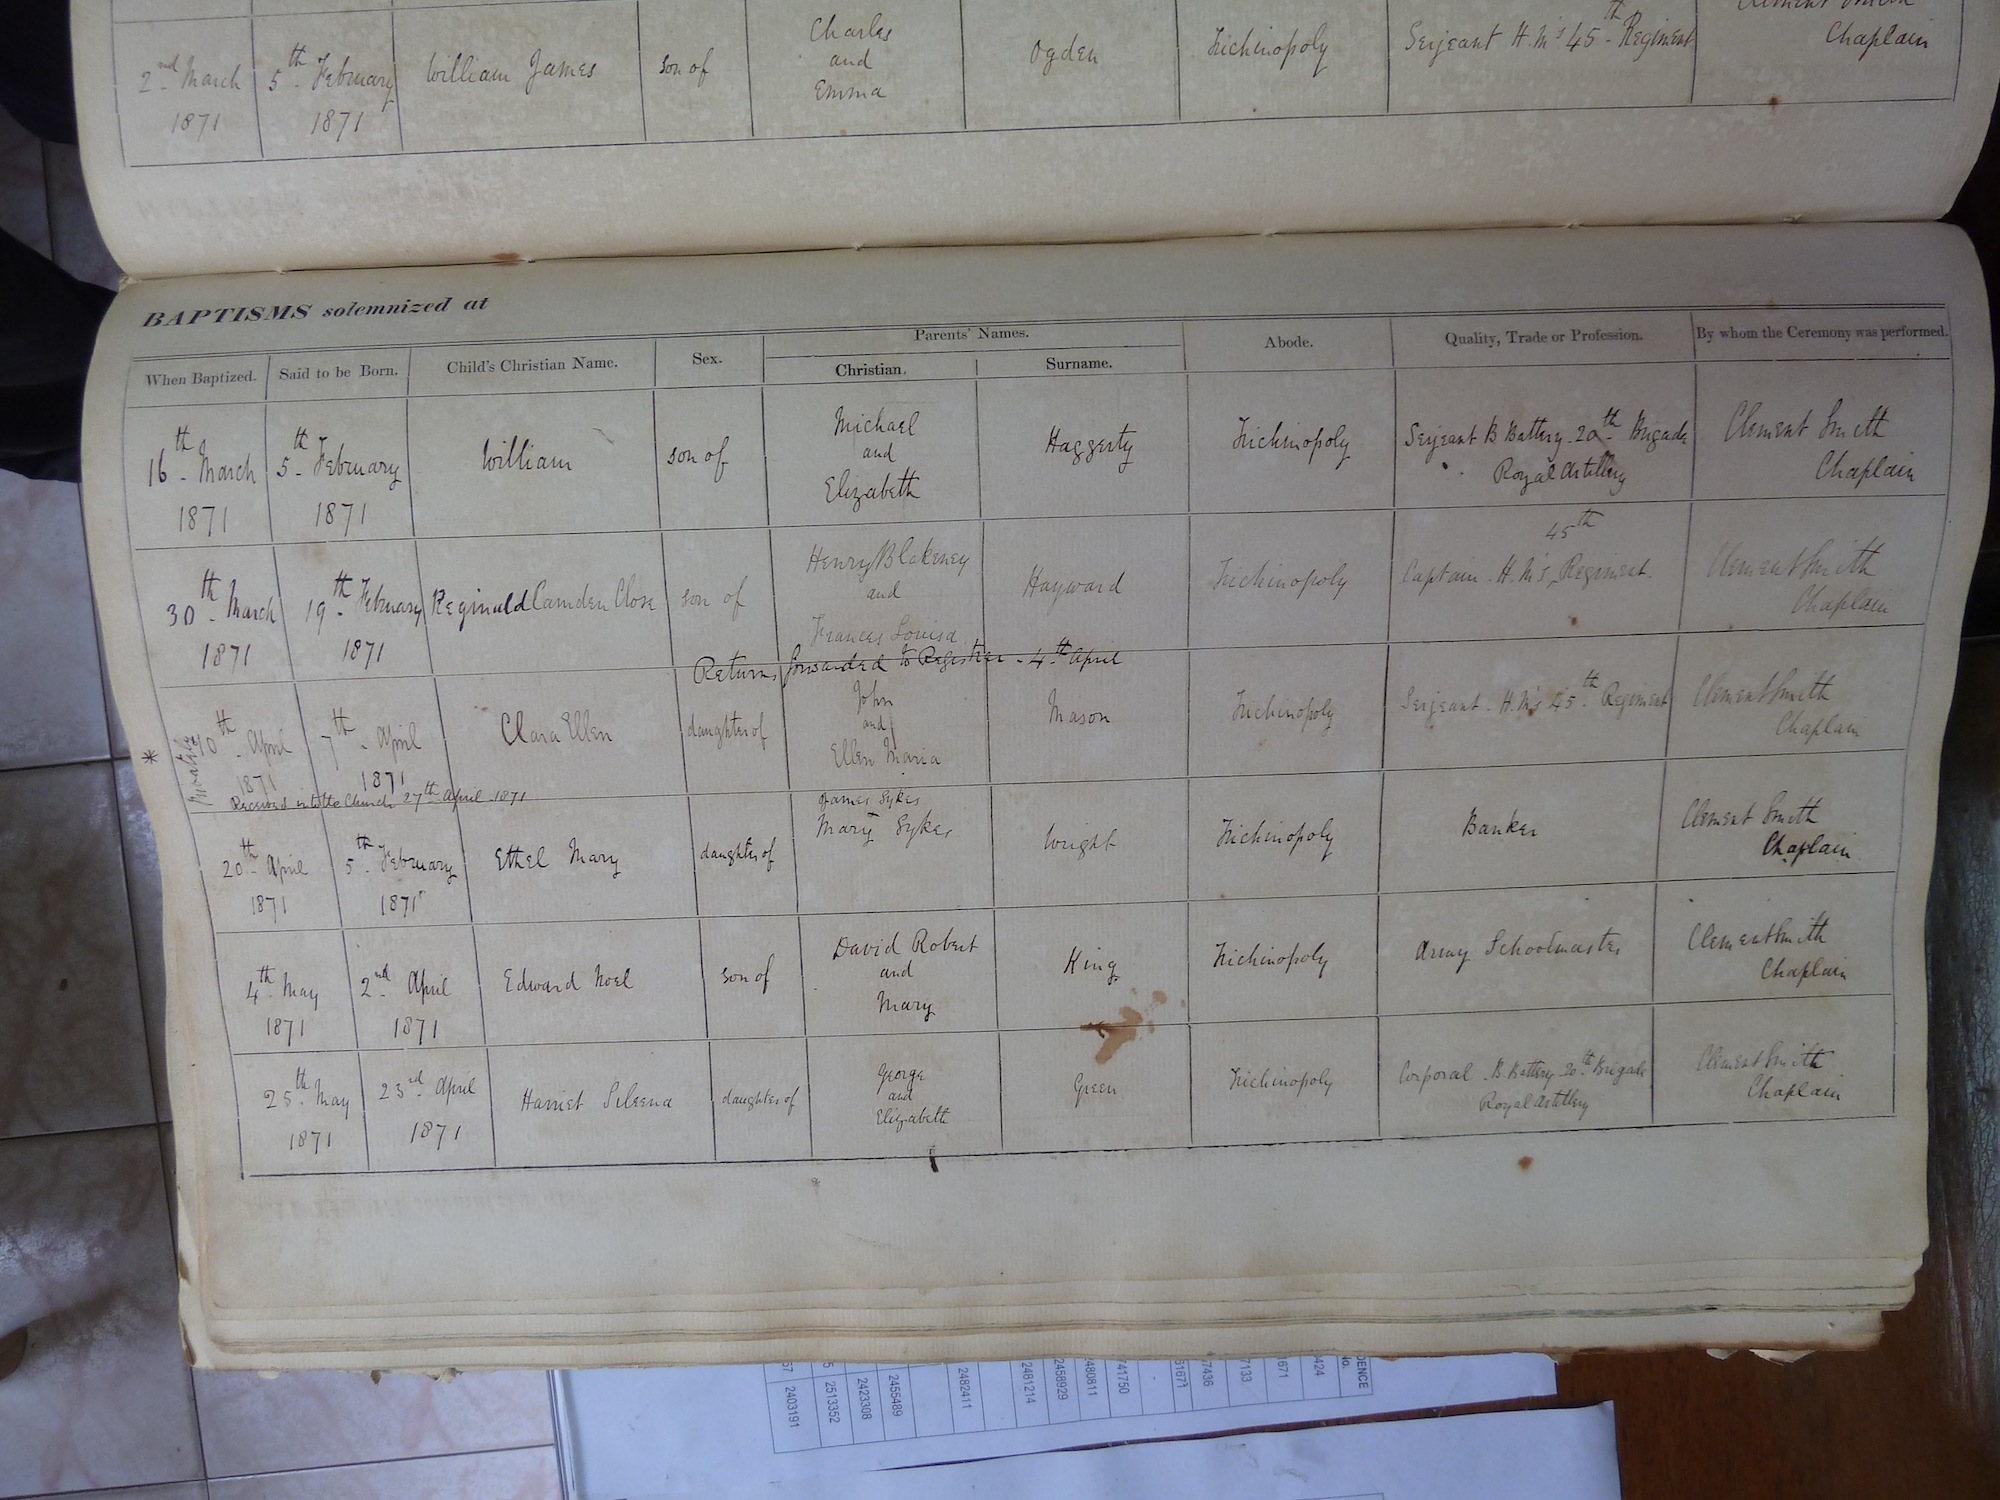 Charles
and
Emma
Ogden
Trichinopoly
Serjeant H.M's 45th Regiment
Chaplain
2nd March
1871
5th February
1871
William James
son of
BAPTISMS solemnized at
When Baptized.
Said to be Born.
Child's Christian Name.
Sex.
Parents' Names.
Christian.
Surname.
Abode.
Quality, Trade or Profession.
By whom the Ceremony was performed.
16th March
1871
5th February
1871
William
son of
Michael
and
Elizabeth
Haggerty
Trichinopoly
Serjeant B Battery 20th Brigade
Royal Artillery
Clement Smith
Chaplain
30th March
1871
19th February
1871
Reginald Camden Close
son of
Henry Blakeney
and
Frances Louisa
Hayward
Trichinopoly
45th
Captain H.M's Regiment
Clement Smith
Chaplain
Returns forwarded to Registrar - 4th April
*
10th April
1871
7th April
1871
Clara Ellen
daughter of
John
and
Ellen Maria
Mason
Trichinopoly
Serjeant H.M's 45th Regiment
Clement Smith
Chaplain
Received into the Church 27th April 1871
20th April
1871
5th February
1871
Ethel Mary
daughter of
James Sykes
Mary Sykes
Wright
Trichinopoly
Banker
Clement Smith
Chaplain
4th May
1871
2nd April
1871
Edward Noel
son of
David Robert
and
Mary
King
Trichinopoly
Army Schoolmaster
Clement Smith
Chaplain
25th May
1871
23rd April
1871
Harriet Sileena
daughter of
George
and
Elizabeth
Green
Trichinopoly
Corporal B. Battery 20th Brigade
Royal Artillery
Clement Smith
Chaplain
2403191
2513352
2423308
2455489
2482411
2481214
2458929